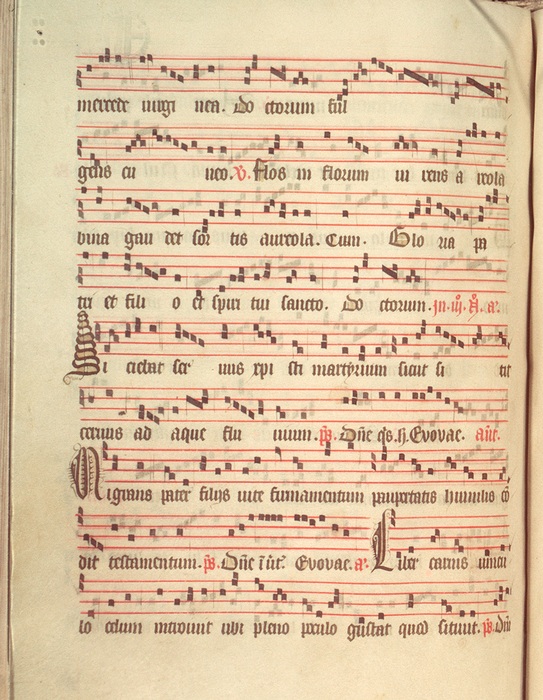 mercede uirgi nea. Do ctorum ful
gens cu neo. V. Flos in florum ui rens a reola
bina gau det sor tis aureola. Cum. Glo ria pa
tri et fili o et spiri tui sancto. Do ctorum. In .iij. N. a.
Si ciebat ser uus xpi sti martyrium sicut si tit
ceruus ad aque flu uium. ps. Dne qs. h. Evovae. ant.
Migrans pater filijs uite firmamentum paupertatis humilis co
dit testamentum. ps. Dne Evovae. a. Liber carnis uincu
lo celum introiuit ubi pleno poculo gustat quod sitiuit. ps. Dne